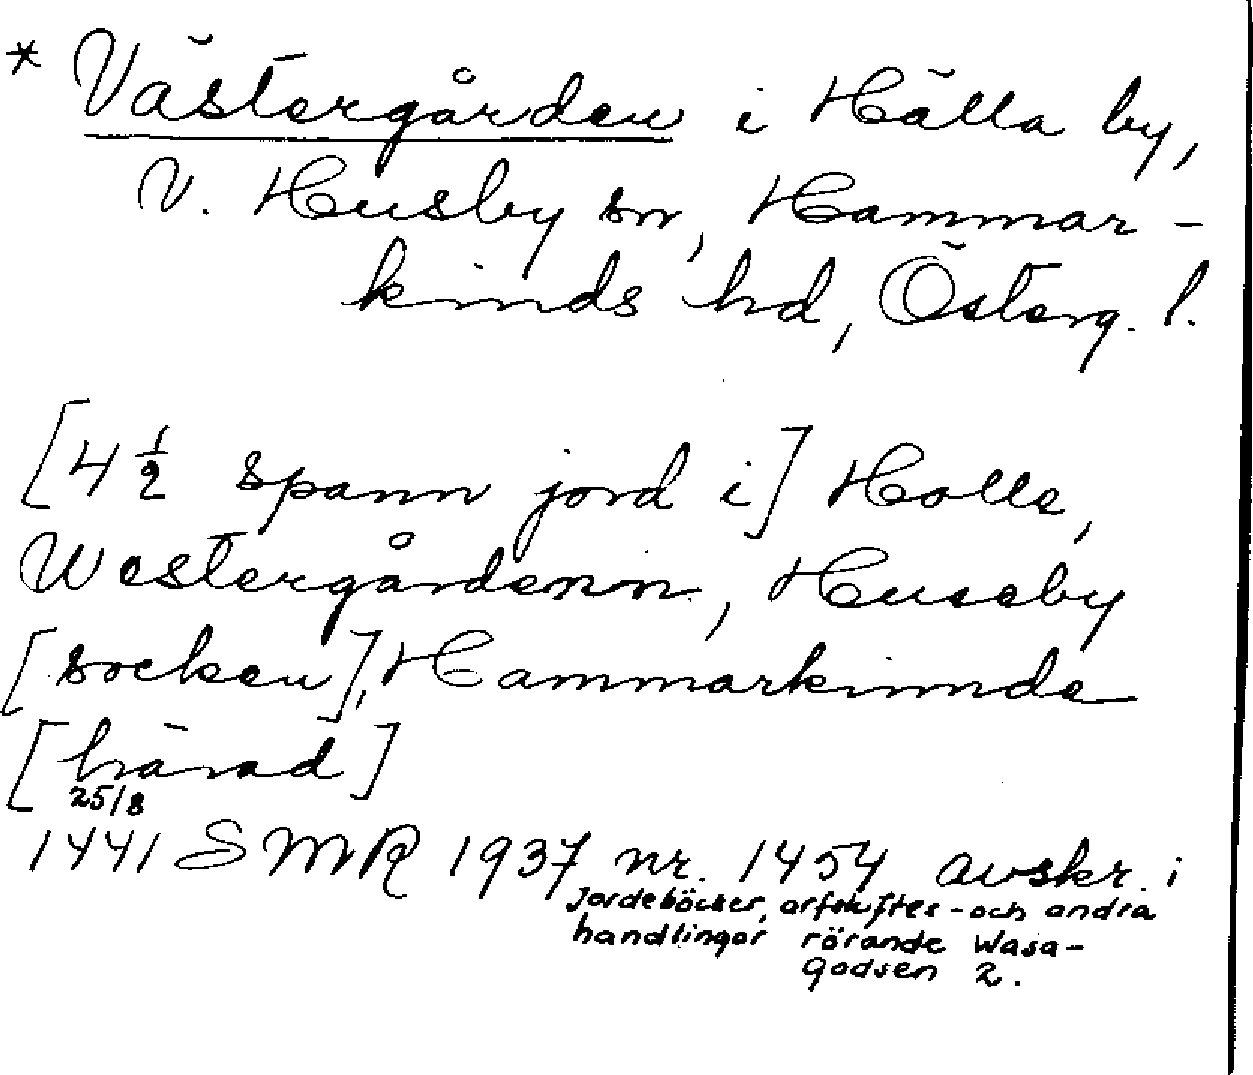 * Västergården i Hälla by,
V. Husby sn, Hammar-
kinds hd, Österg. l.
[4 1/2 spann jord i] Holle,
Westergårdenn, Huseby
[socken], Hammarkinnde
[härad]
25/8
1441 SMR 1937 nr. 1454 avskr. i
Jordeböcker, arfskiftes- och andra
handlingar rörande Wasa-
godsen 2.